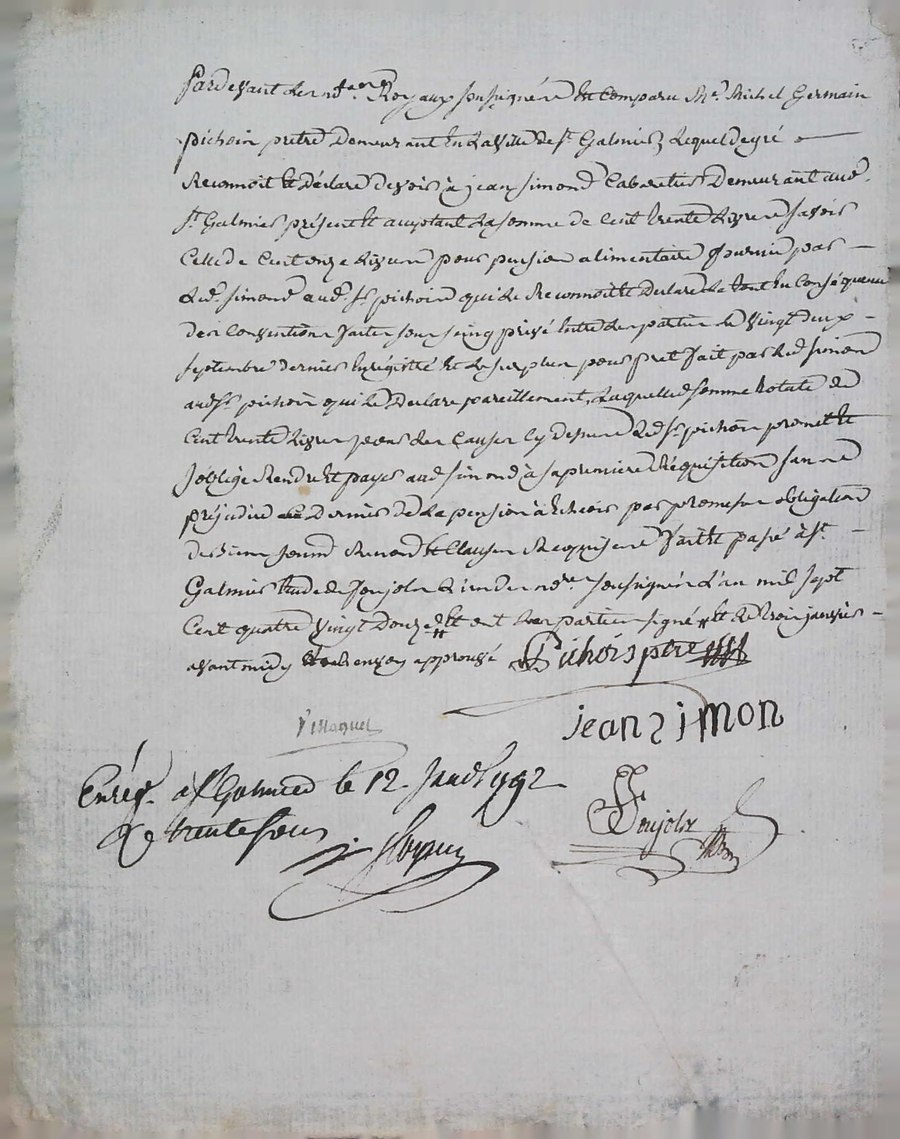 Pardevant les nores Royaux soussignés est Comparu Mre Michel Germain
pichoin prêtre Demeurant En la ville de st Galmier Lequel de gré
Reconnoit et déclare devoir à jean simond Cabaretier Demeurant aud.
st Galmier présent et acceptant la somme de Cent trente Livres savoir
Celle de Cent onze Livres pour pension alimentaire fournie par
led. simond aud. sr pichoin qui le Reconnoit et Declare le tout En Conséquence
des Conventions faites sous seing privé Entre les parties le vingt deux
septembre dernier Enrégistré Et le surplus pour pret fait par led simond
aud sr pichoin qui le Declare pareillement, Laquelle somme totale de
Cent trente Livres pour les Causes Cy dessus led sr pichoin promet et
s'oblige Rendre Et payer aud simond à sa premiere Réquisition sans
préjudice de la pension à Echeoir par promesse obligation
de biens Renond Et Clauses Requises fait Et passé à st
Galmier Etude de Soujols L'un des nores soussignés L'an mil sept
Cent quatre vingt Douze Et ont Les parties signé Et le trois janvier
avant midy approuvé Pichois ptre
jean simon
Enrég. à st Galmier le 12. Janv. 1792
trente sous
Soujols